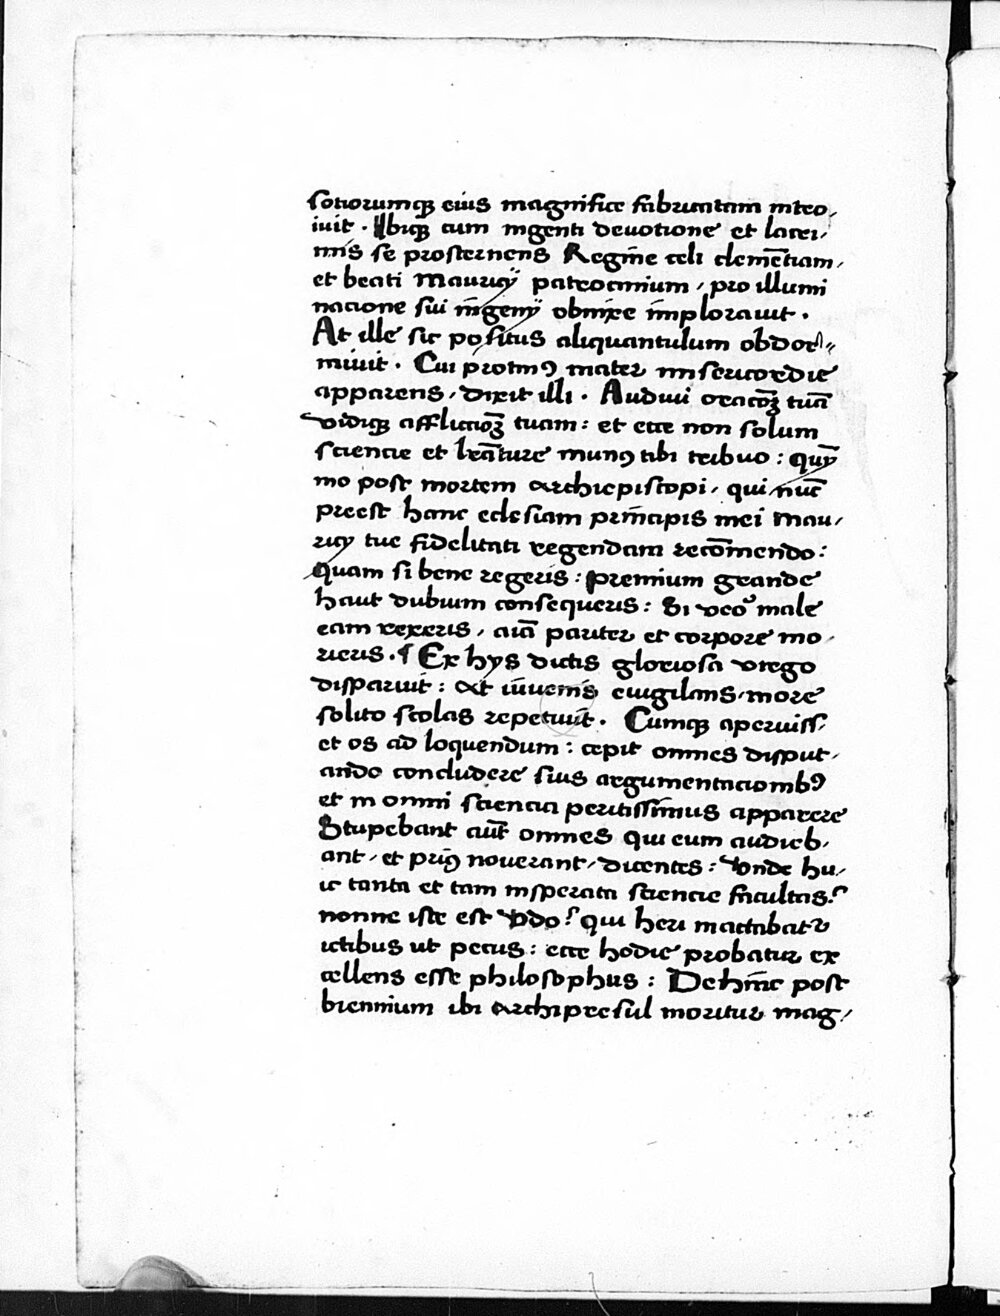 sotiorumqꝫ eius magnifice fabricatam intro,
iuit . Ibiqꝫ cum ingenti deuotione et lacri,
mis se prosternens Regine celi clemētiam,
et beati Mauricÿ patrocinium, pro illumi
nacione sui īngenÿ obnixe īmplorauit .
At ille sic positus aliquantulum obdor,,
miuit . Cui protinꝰ mater misericordie
apparens, dixit illi . Audiui oracōꝫ tuā
vidiqꝫ afflictiōꝫ tuam : et ecce non solum
sciencie et lrāture munꝰ tibi tribuo : quȳ
mo post mortem archiepiscopi, qui nūc
preest hanc eclesiam prīncipis mei Mau,
ricy tue fidelitati regendam recōmendo :
Quam si bene regeris : premium grande
haut dubium consequeris : Si vcoͦ male
eam rexeris, aīa pariter et corpore mo,
rieris . ¶ Ex hys dictis gloriosa virgo
disparuit : At iuuenis euigilans, more
solito scolas repetiuit . Cumqꝫ aperuiss,
et os ad loquendum : cepit omnes disput,
ando concludere suis argumentacionibꝰ
et in omni sciencia peritissīmus apparere
Stupebant aūt omnes qui eum audieb,
ant, et priꝰ nouerant, dicentes : Vnde hu,
ic tanta et tam insperata sciencie facultas?
nonne iste est Vdo? qui heri mactabatᷣ
ictibus ut pecus : ecce hodie probatur ex
cellens esse philosophus : Dehīnc post
biennium ibi archipresul moritur mag,